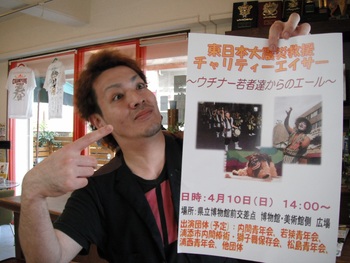 東日本大震災救援
チャリティーエイサー
～ウチナー若者達からのエール～
日時：４月１０日（日） 14:00～
場所：県立博物館前交差点 博物館・美術館側 広場
出演団体（予定）：内間青年会、若狭青年会、
浦添市内間棒術・獅子舞保存会、松島青年会、
浦西青年会、他団体